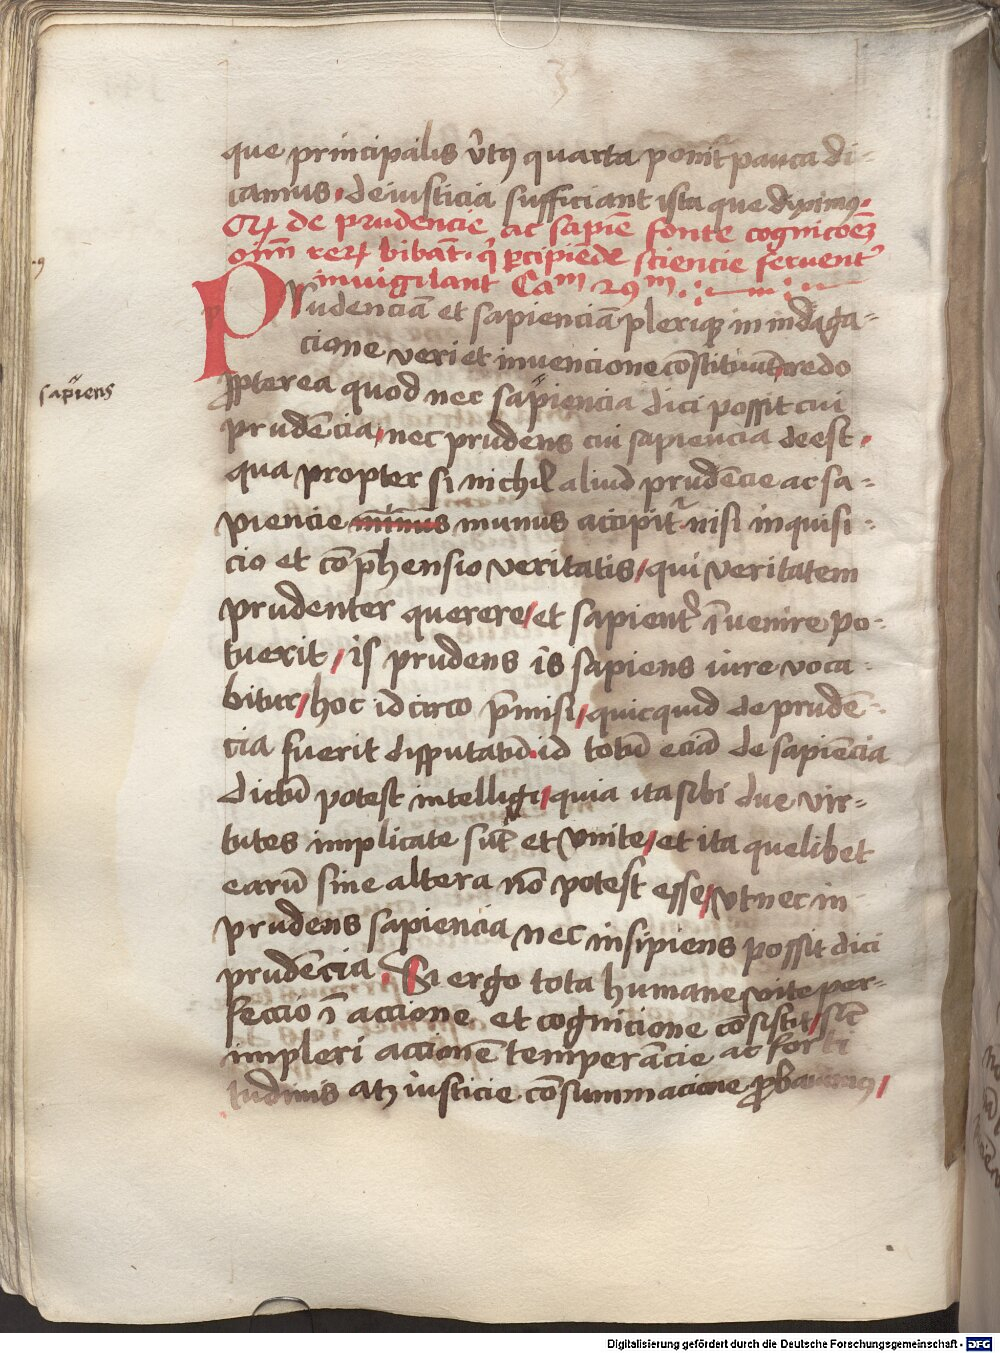 que principalis v̾tꝰ quarta ponit᷑ pauca di-
camus. de iusticia sufficiant ista que diximꝰ.
Qꝛ de prudencie ac sapiē fonte cognicōeꝫ
oīm rerꝝ bibāt. q̇ ꝑcipiēde sciencie feruent᷑
inuigilant Caᵐ 29ᵐ.
Prudenciā et sapienciā pleriqꝫ in indaga-
cione veri et invencione cōstituūt credo
sapiens
ꝓpterea quod nec sapiencia dici possit cui
prudēcia, nec prudens cui sapiencia deest.
qua propter si nichil aliud prudēcie ac sa-
piencie minus munus accipit᷑ nisi inquisi-
cio et cōp̄hensio veritatis, qui veritatem
prudenter querere, et sapient̾ īuenire po-
tuerit, is prudens is sapiens iure voca-
bitur, hoc id circo p̄misi, quicquid de prudē-
cia fuerit disputatū. id totū eciā de sapiēcia
dictū potest intelligi, quia ita sibi due vir-
tutes implicate sūt et vnite, et ita quelibet
earū sine altera nō potest esse, vt nec in
prudens sapiencia nec insipiens possit dici
prudēcia. Si ergo tota humane vite per-
feccio ī accione et cognicione cōsistit, sic̄
impleri accionē temperācie ac forti
tudinis atꝫ iusticie cōsummacione ꝓbauimꝰ,
Digitalisierung gefördert durch die Deutsche Forschungsgemeinschaft - DFG